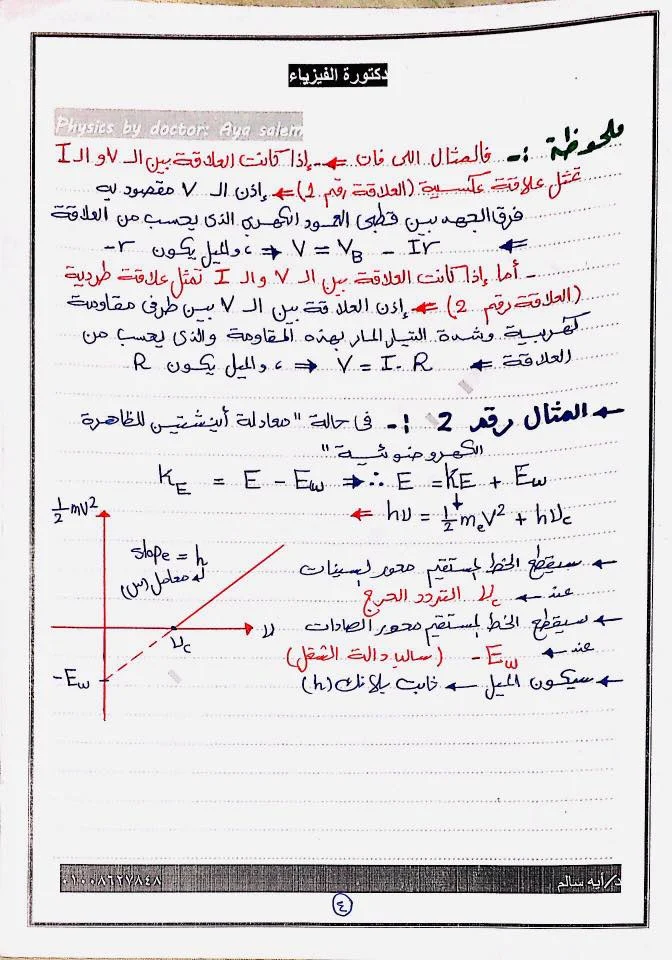 دكتورة الفيزياء
Physics by doctor: Aya salem
ملحوظة :- فالمثال اللى فات ← إذا كانت العلاقة بين الـ V و الـ I
تمثل علاقة عكسية (العلاقة رقم 1) ← إذن الـ V مقصود به
فرق الجهد بين قطبى العمود الكهربى الذى يحسب من العلاقة
← V = VB - Ir ⇒ ، والميل يكون -r
- أما إذا كانت العلاقة بين الـ V والـ I تمثل علاقة طردية
(العلاقة رقم 2) ← إذن العلاقة بين الـ V بين طرفى مقاومة
كهربية وشدة التيار المار بهذه المقاومة والذى يحسب من
العلاقة ← V = I . R ⇒ ، والميل يكون R
← المثال رقم 2 :- فى حالة "معادلة أينشتين للظاهرة
الكهروضوئية"
KE = E - Ew ⇒ ∴ E = KE + Ew
← hν = 1/2 meV² + hνc
1/2 mV²
slope = h
معامل (س)
ν
νc
-Ew
← سيقطع الخط المستقيم محور السينات
عند ← νc التردد الحرج
← سيقطع الخط المستقيم محور الصادات
عند ← -Ew (سالب دالة الشغل)
← سيكون الميل ← ثابت بلانك (h)
د/أيه سالم
٠١٠٠٨٦٢٧٨٤٨
٤